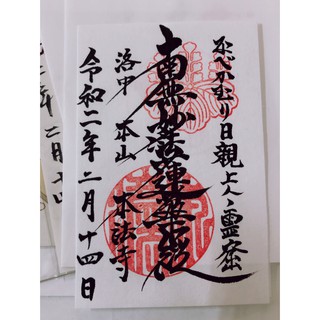 なべかむり日親上人霊窟
南無妙法蓮華経
洛中 本山 本法寺
令和二年二月十四日